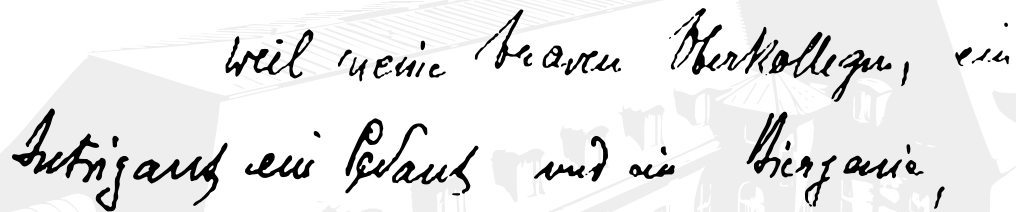 weil meine braven Oberkollegen, ein
Intrigant ein Pedant und ein Biergenie,